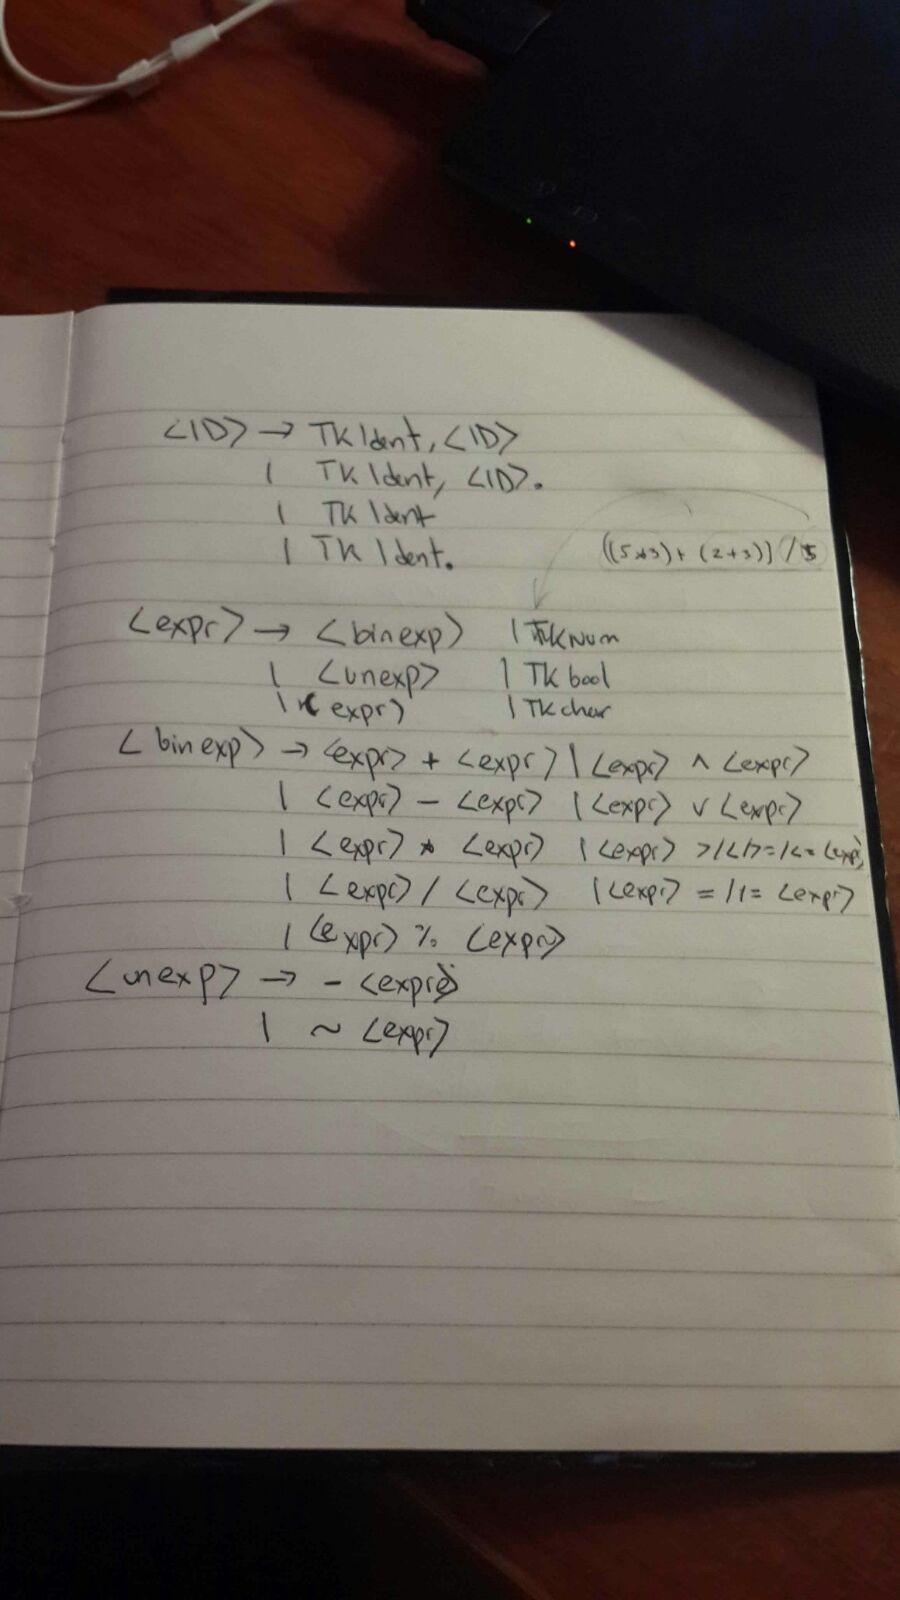 <ID> → TkIdent, <ID>
| TkIdent, <ID>.
| TkIdent
| TkIdent.
((5*3)+(2+3))/5
<expr> → <binexp> | TkNum
| <unexp> | Tkbool
| (expr) | Tkchar
<binexp> → <expr> + <expr> | <expr> ∧ <expr>
| <expr> - <expr> | <expr> ∨ <expr>
| <expr> * <expr> | <expr> >/</>=/<= <expr>
| <expr> / <expr> | <expr> = / != <expr>
| <expr> % <expr>
<unexp> → - <expr>
| ~ <expr>